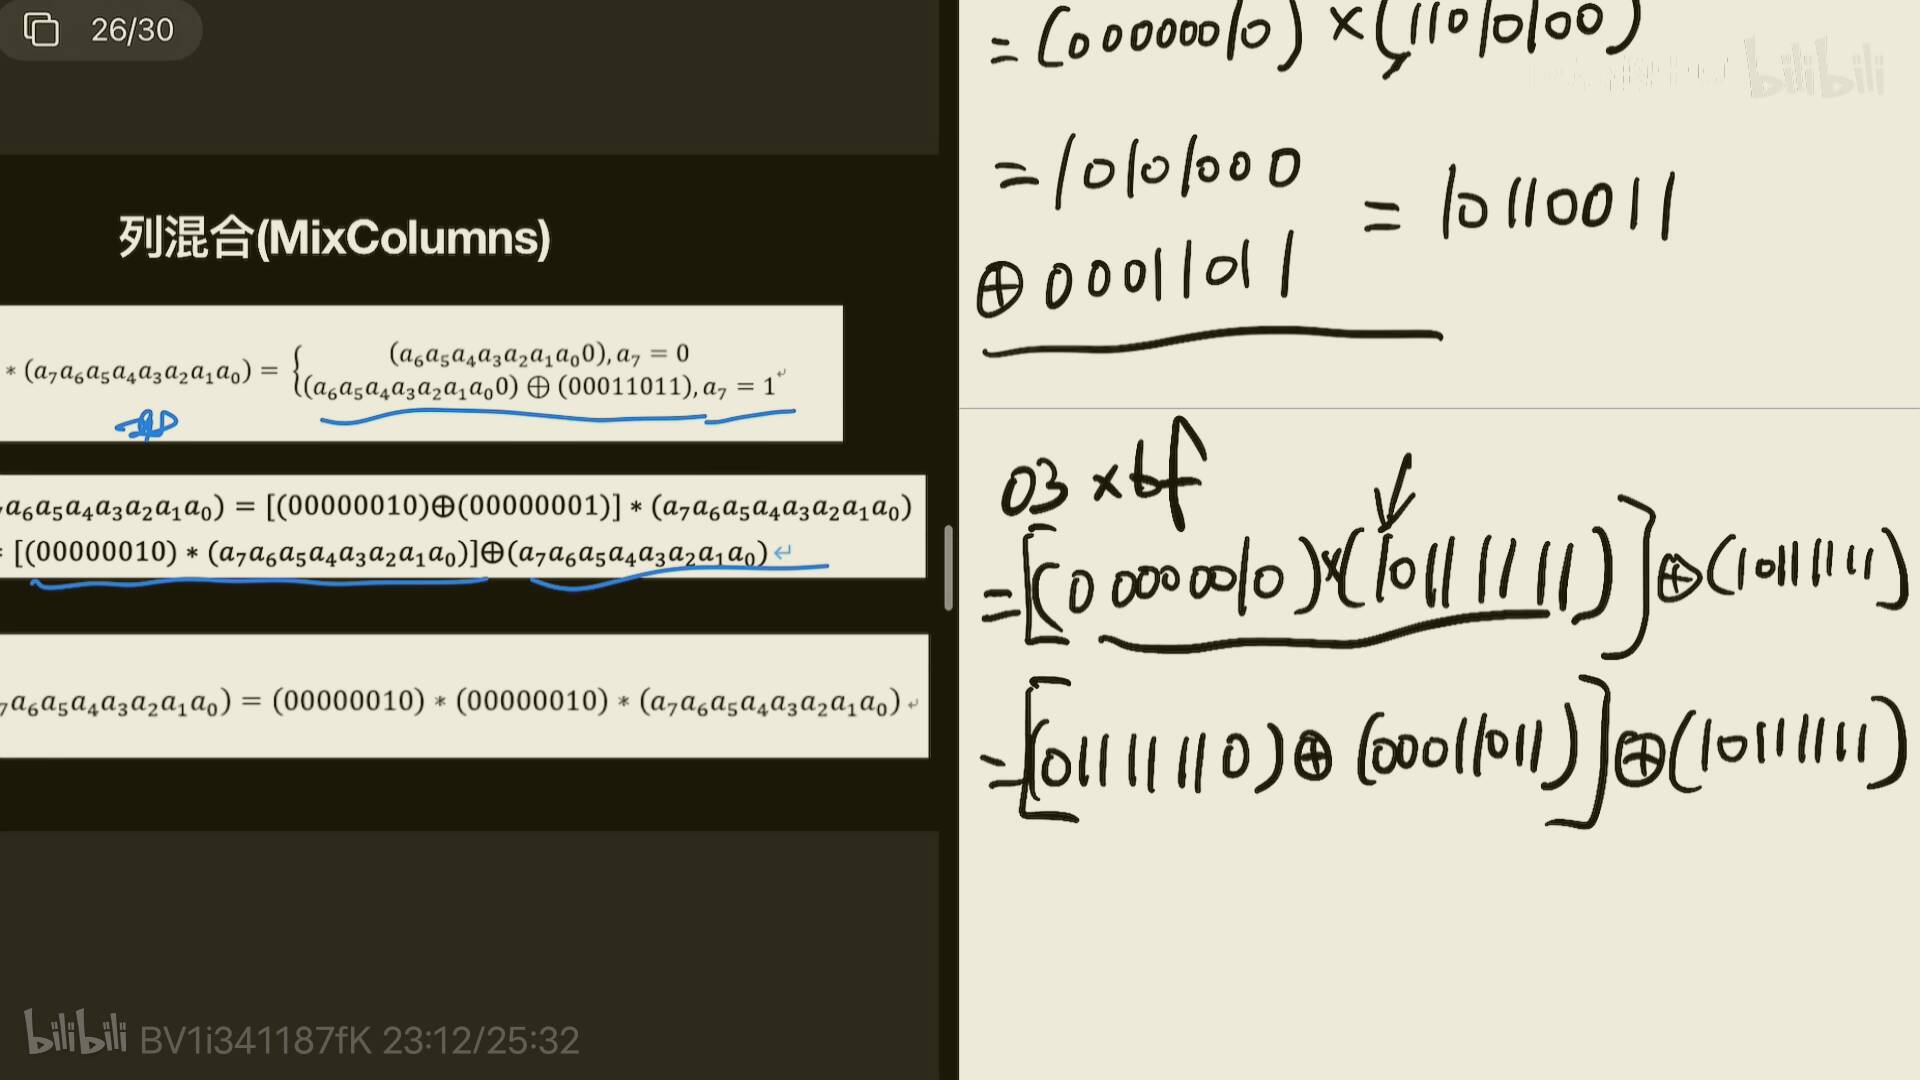 26/30
列混合(MixColumns)
* (a₇a₆a₅a₄a₃a₂a₁a₀) = { (a₆a₅a₄a₃a₂a₁a₀0), a₇ = 0
(a₆a₅a₄a₃a₂a₁a₀0) ⊕ (00011011), a₇ = 1
a₆a₅a₄a₃a₂a₁a₀) = [(00000010)⊕(00000001)] * (a₇a₆a₅a₄a₃a₂a₁a₀)
= [(00000010) * (a₇a₆a₅a₄a₃a₂a₁a₀)]⊕(a₇a₆a₅a₄a₃a₂a₁a₀)
₇a₆a₅a₄a₃a₂a₁a₀) = (00000010) * (00000010) * (a₇a₆a₅a₄a₃a₂a₁a₀)
bilibili BV1i341187fK 23:12/25:32
= (00000010) × (11010100)
bilibili
= 10101000
⊕ 00011011
= 10110011
03 × bf
= [(00000010) × (10111111)] ⊕ (10111111)
= [(01111110) ⊕ (00011011)] ⊕ (10111111)